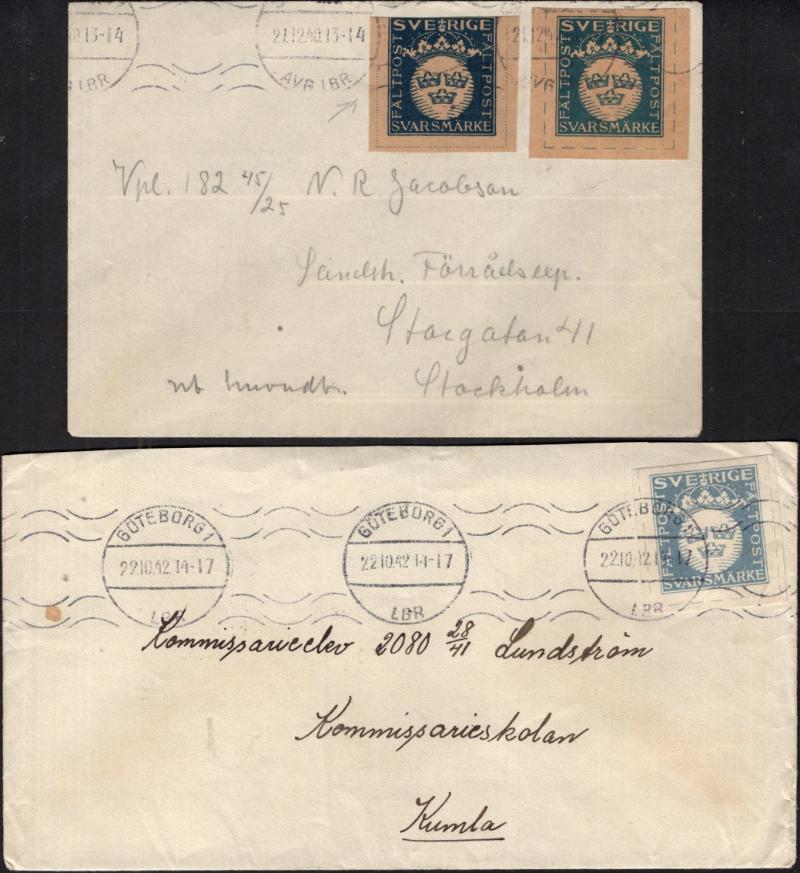 0.13-14
LBR
21.12.40.13-14
AVG LBR
SVERIGE
FÄLTPOST
FÄLTPOST
SVARSMÄRKE
21.12.4
AVG
SVERIGE
FÄLTPOST
FÄLTPOST
SVARSMÄRKE
Vpl. 182 45/25 N. R. Jacobson
Landst. Förrådsexp.
Storgatan 41
Stockholm
GÖTEBORG 1
22.10.42 14-17
LBR
GÖTEBORG 1
22.10.42 14-17
LBR
GÖTEBORG
22.10.42 14-17
LBR
SVERIGE
FÄLTPOST
FÄLTPOST
SVARSMÄRKE
Kommissarieelev 2080 28/41 Lundström
Kommissarieskolan
Kumla